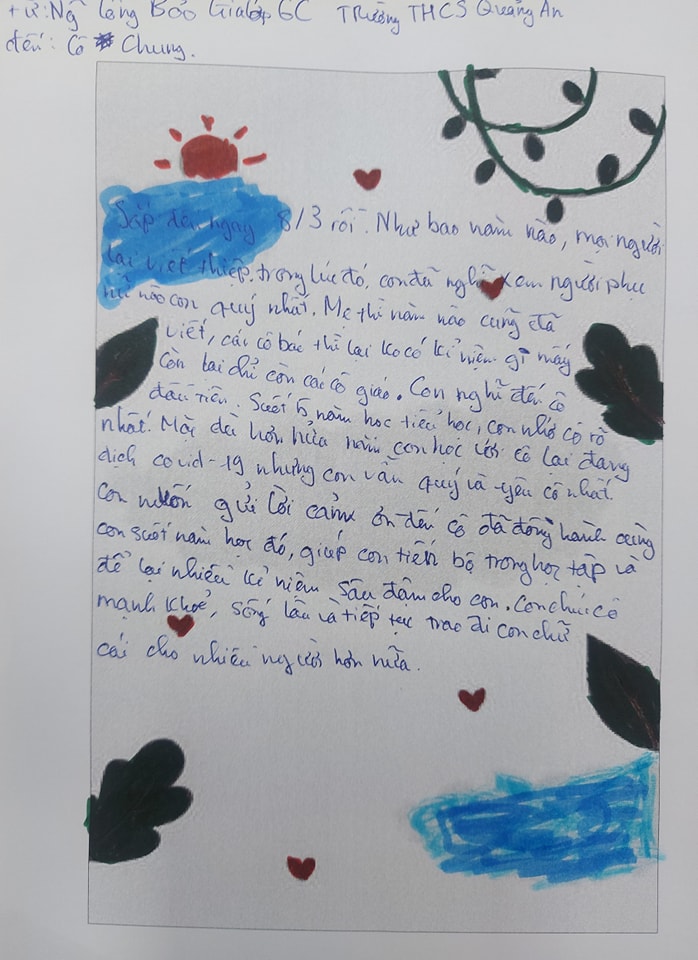 từ: Ngô Công Bảo Gia lớp 6C Trường THCS Quảng An
đến: Cô Chung.
Sắp đến ngay 8/3 rồi. Như bao năm nào, mọi người
lại viết thiệp, trong lúc đó, con đã nghĩ xem người phục
nữ nào con quý nhất. Mẹ thì năm nào cũng đã
viết, các cô bác thì lại ko có kỉ niệm gì mấy
còn lại chỉ còn các cô giáo. Con nghĩ đến cô
đầu tiên. Suốt 5 năm học tiểu học, con nhớ cô rõ
nhất. Mặc dù hơn nửa năm con học với cô lại đang
dịch covid-19 nhưng con vẫn quý và yêu cô nhất.
Con muốn gửi lời cảm ơn đến cô đã đồng hành cùng
con suốt năm học đó, giúp con tiến bộ trong học tập và
để lại nhiều kỉ niệm sâu đậm cho con. Con chúc cô
mạnh khoẻ, sống lâu và tiếp tục trao đi con chữ
cái cho nhiều người hơn nữa.